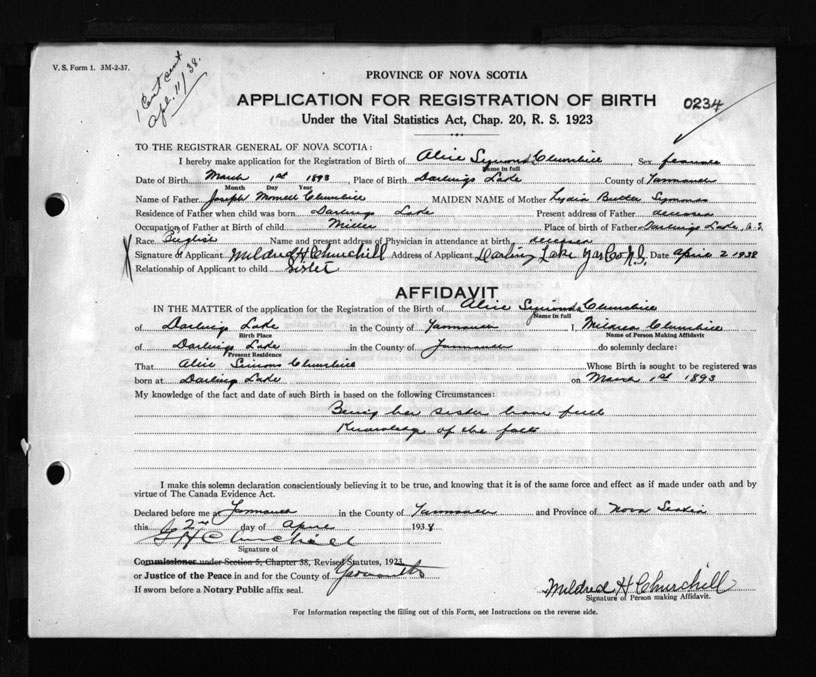 V. S. Form 1. 3M-2-37.
1 Cert sent
Apl. 11/38.
PROVINCE OF NOVA SCOTIA
APPLICATION FOR REGISTRATION OF BIRTH 0234
Under the Vital Statistics Act, Chap. 20, R. S. 1923
TO THE REGISTRAR GENERAL OF NOVA SCOTIA:
I hereby make application for the Registration of Birth of Alice Symons Churchill, Sex female
Name in full
Date of Birth March 1st 1893, Place of Birth Darlings Lake County of Yarmouth
Month Day Year
Name of Father Joseph Churchill MAIDEN NAME of Mother Lydia Butler Symons
Residence of Father when child was born Darlings Lake Present address of Father deceased
Occupation of Father at Birth of child Miller Place of birth of Father Darlings Lake, N.S.
Race English Name and present address of Physician in attendance at birth deceased
X Signature of Applicant Mildred H Churchill Address of Applicant Darling Lake Yar Co N.S. Date April 2 1938
Relationship of Applicant to child Sister
AFFIDAVIT
IN THE MATTER of the application for the Registration of the Birth of Alice Symonds Churchill
Name in full
of Darlings Lake in the County of Yarmouth I, Mildred Churchill
Birth Place Name of Person Making Affidavit
of Darlings Lake in the County of Yarmouth do solemnly declare:
Present Residence
That Alice Simons Churchill Whose Birth is sought to be registered was
born at Darling Lake on March 1st 1893
My knowledge of the fact and date of such Birth is based on the following Circumstances:
Being her sister have full
Knowledge of the facts
I make this solemn declaration conscientiously believing it to be true, and knowing that it is of the same force and effect as if made under oath and by
virtue of The Canada Evidence Act.
Declared before me at Yarmouth in the County of Yarmouth and Province of Nova Scotia
this 2nd day of April 1938
Churchill
Signature of
Commissioner under Section 5, Chapter 38, Revised Statutes, 1923
or Justice of the Peace in and for the County of Yarmouth
If sworn before a Notary Public affix seal.
Mildred H Churchill
Signature of Person making Affidavit.
For Information respecting the filling out of this Form, see Instructions on the reverse side.